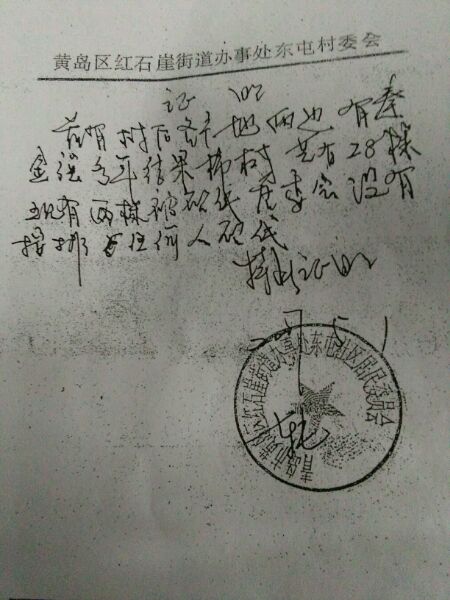 黄岛区红石崖街道办事处东屯村委会
证 明
有村后 地两边有秦
金 多年结果柿树 共有28棵
现有两棵被砍伐 居委会没有
排 任何人砍伐
特此证明
青岛市黄岛区红石崖街道办事处东屯社区居民委员会